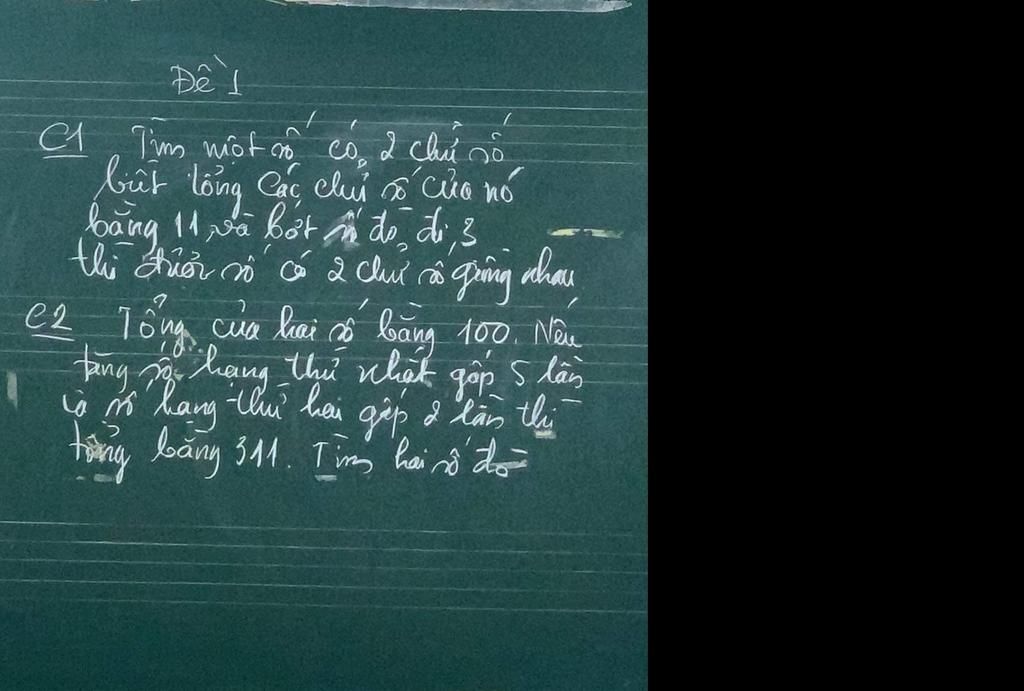 Đề 1
C1 Tìm một số có 2 chữ số
biết tổng các chữ số của nó
bằng 11, và bớt số đó đi 3
thì được số có 2 chữ số giống nhau
C2 Tổng của hai số bằng 100. Nếu
tăng số hạng thứ nhất gấp 5 lần
và số hạng thứ hai gấp 2 lần thì
tổng bằng 311. Tìm hai số đó